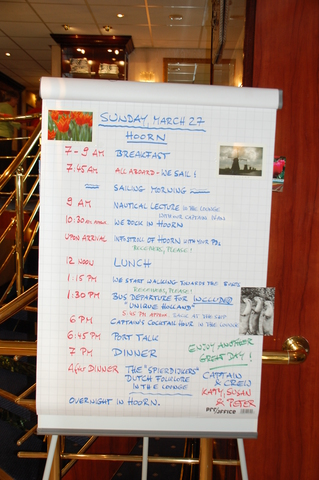 SUNDAY, MARCH 27
HOORN
7 - 9 AM BREAKFAST
7:45 AM ALL ABOARD - WE SAIL!
SAILING MORNING
9 AM NAUTICAL LECTURE IN THE LOUNGE
WITH OUR CAPTAIN
10:30 AM WE DOCK IN HOORN
UPON ARRIVAL INFO STROLL OF HOORN WITH YOUR PDs
RECEIVERS, PLEASE!
12 NOON LUNCH
1:15 PM WE START WALKING TOWARDS THE BUSES
RECEIVERS, PLEASE!
1:30 PM BUS DEPARTURE FOR INCLUDED
"UNIQUE HOLLAND"
5:45 PM APPROX. BACK AT THE SHIP
6 PM CAPTAIN'S COCKTAIL HOUR IN THE LOUNGE
6:45 PM PORT TALK
7 PM DINNER
After DINNER THE "SPIERDIJKERS"
DUTCH FOLKLORE
IN THE LOUNGE
OVERNIGHT IN HOORN.
ENJOY ANOTHER
GREAT DAY!
CAPTAIN
& CREW
KATY, SUSAN
& PETER
PROOFFICE